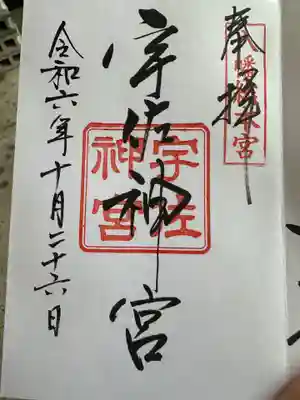 奉拝
宇佐神宮
宇佐
神宮
令和六年十月二十六日